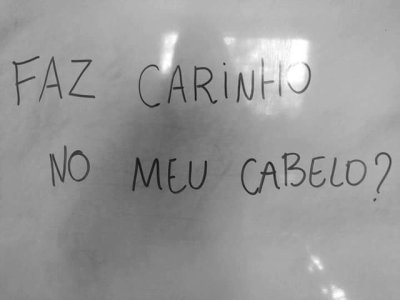 FAZ CARINHO
NO MEU CABELO?